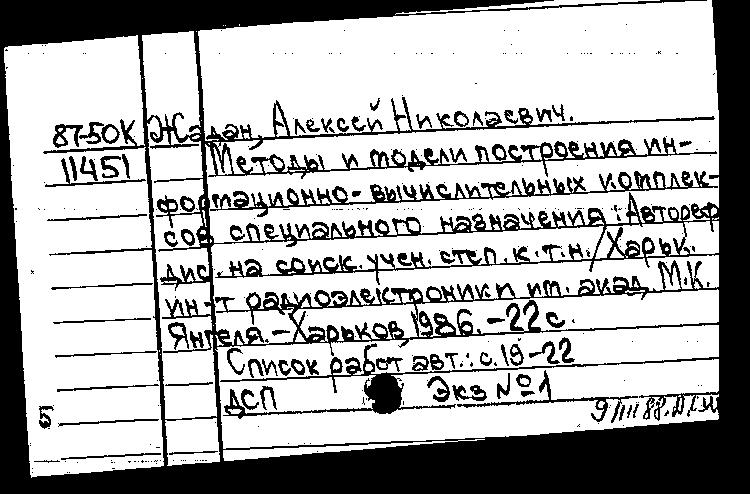 87-50К Жадан, Алексей Николаевич.
11451 Методы и модели построения ин-
формационно-вычислительных комплек-
сов специального назначения : Автореф
дис. на соиск. учен. степ. к.т.н. / Харьк.
ин-т радиоэлектроники им. акад. М.К.
Янгеля. – Харьков, 1986. – 22 с.
Список работ авт.: с. 19-22
ДСП Экз № 1
9/III 88.